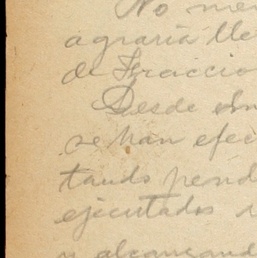 No men
agraria lle
de Fraccio
Desde
se han efec
tando pend
ejecutados
y alcanzand